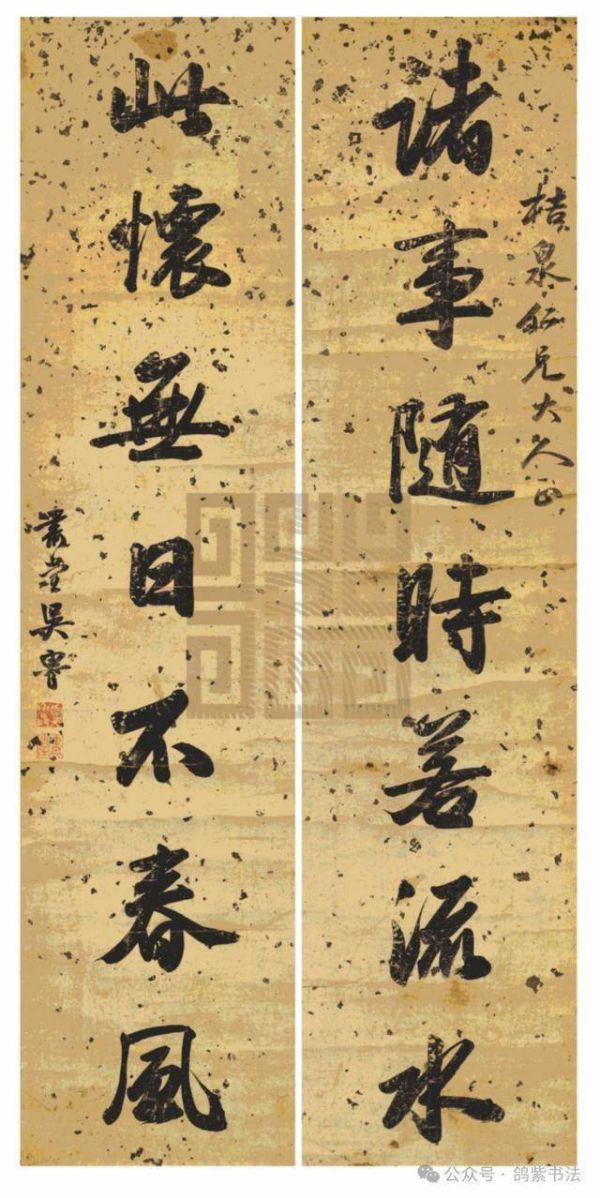 諸事隨時若流水
桔泉仁兄大人正
此懷無日不春風
肅堂吳魯
公众号 · 鸽紫书法